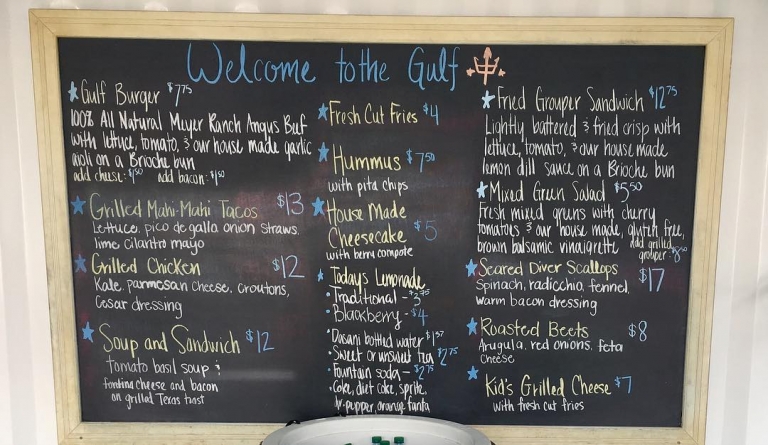 Welcome to the Gulf
Gulf Burger $7.75
100% All Natural Meyer Ranch Angus Beef
with lettuce, tomato, & our house made garlic
aioli on a Brioche bun
add cheese: $1.50 add bacon: $1.50
Grilled Mahi-Mahi Tacos $13
Lettuce, pico de gallo, onion straws,
lime cilantro mayo
Grilled Chicken $12
Kale, parmesan cheese, croutons,
Cesar dressing
Soup and Sandwich $12
Tomato basil soup &
fontina cheese and bacon
on grilled Texas toast
Fresh Cut Fries $4
Hummus $7.50
with pita chips
House Made
Cheesecake $5
with berry compote
Todays Lemonade
• Traditional -
• Blackberry - $4
• Dasani bottled water
• Sweet or unsweet tea $2.75
• Fountain soda - $2.75
• Coke, diet coke, sprite,
dr. pepper, orange fanta
Fried Grouper Sandwich $12.75
Lightly battered & fried crisp with
lettuce, tomato, & our house made
lemon dill sauce on a Brioche bun
Mixed Green Salad $5.50
Fresh mixed greens with cherry
tomatoes & our house made, gluten free,
brown balsamic vinaigrette add grilled
grouper: $8.50
Seared Diver Scallops $17
Spinach, radicchio, fennel,
warm bacon dressing
Roasted Beets $8
Arugula, red onions, feta
cheese
Kid's Grilled Cheese $7
with fresh cut fries